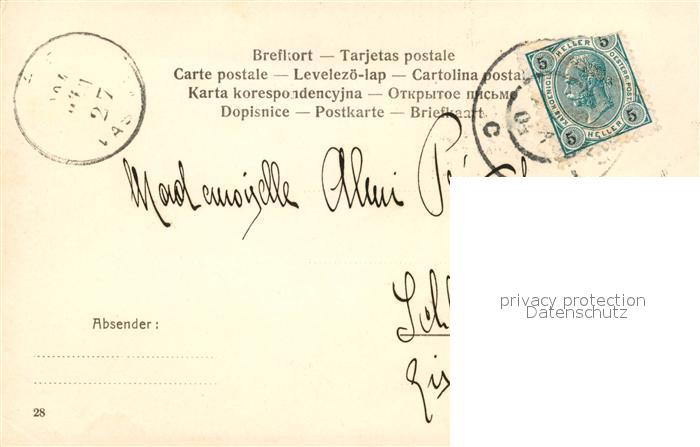 Brefkort — Tarjetas postale
Carte postale — Levelező-lap — Cartolina postal
Karta korespondencyjna — Открытое письмо
Dopisnice — Postkarte — Briefkaart
5 HELLER 5
KAIS. KOENIGL. OESTERR. POST
5 HELLER 5
27
Mademoiselle
privacy protection
Datenschutz
Absender:
28